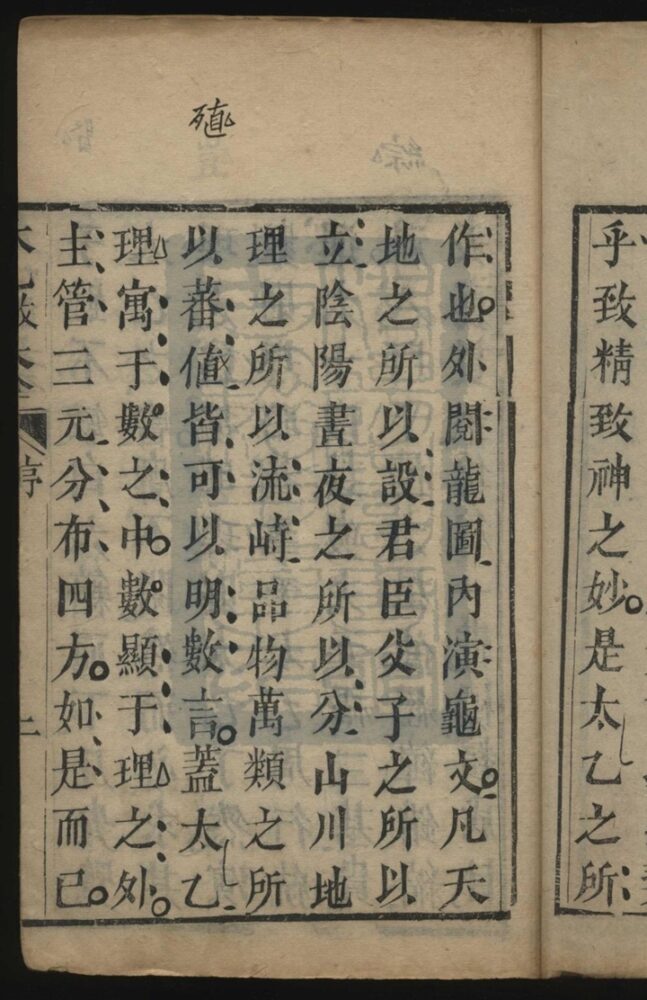 乎致精致神之妙是太乙之所
作也外閱龍圖內演龜文凡天
地之所以設君臣父子之所以
立陰陽晝夜之所以分山川地
理之所以流峙品物萬類之所
以蕃値皆可以明數言蓋太乙
理寓于數之中數顯于理之外
主管三元分布四方如是而已
殖
序